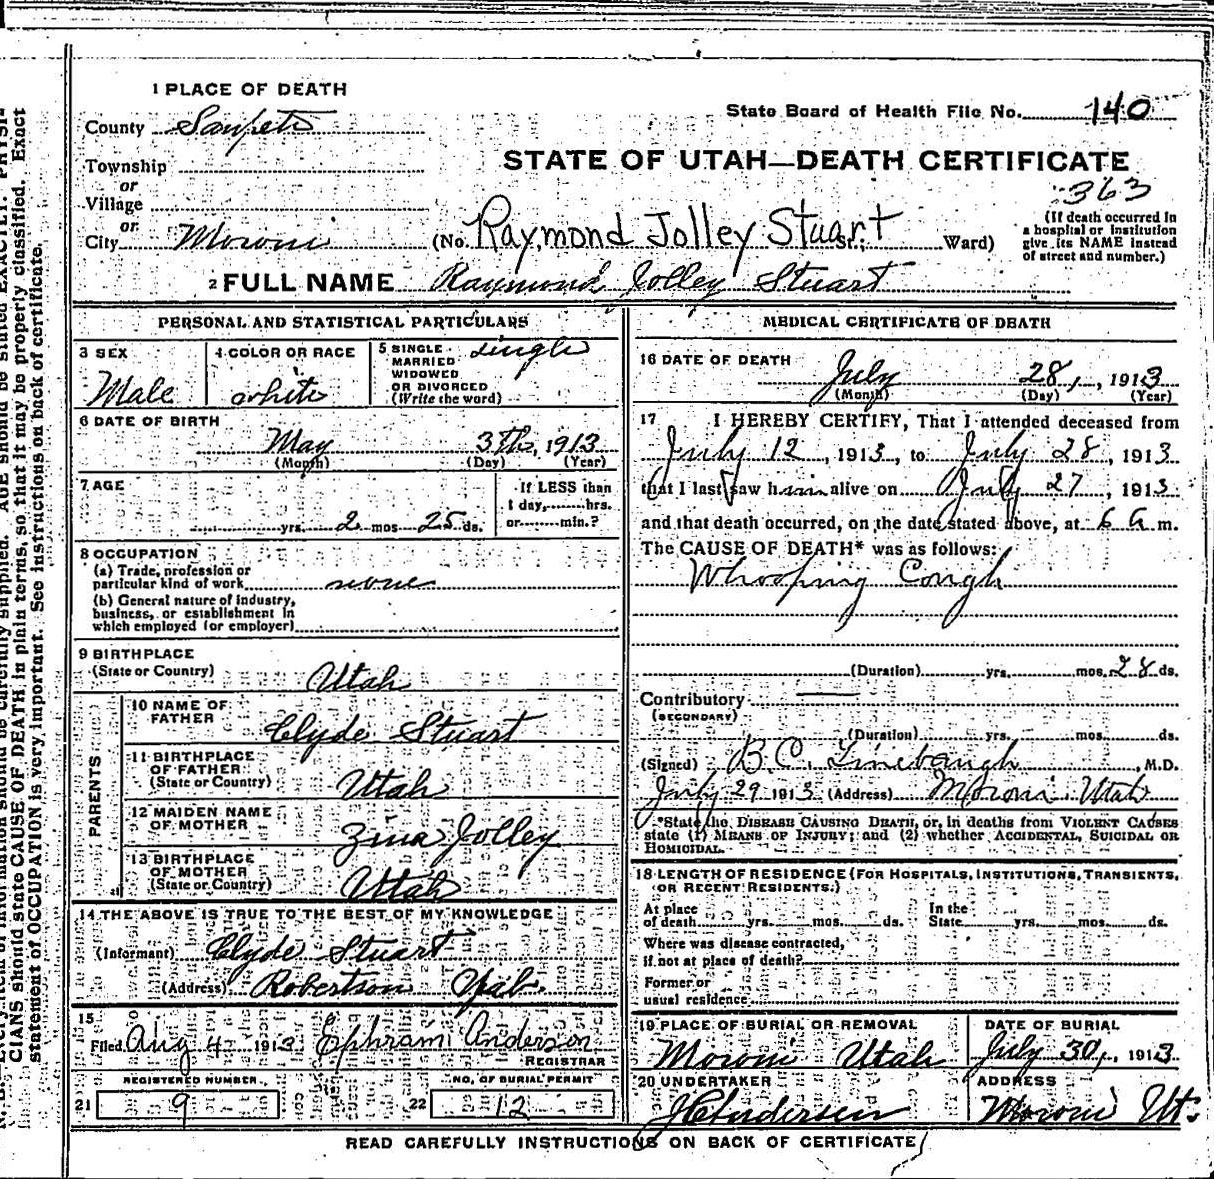 1 PLACE OF DEATH
State Board of Health File No. 140
County Sanpete
STATE OF UTAH—DEATH CERTIFICATE
Township
or
Village
363
or
City Moroni (No. Raymond Jolley Stuart St.; Ward)
(If death occurred in
a hospital or institution
give its NAME instead
of street and number.)
2 FULL NAME Raymond Jolley Stuart
PERSONAL AND STATISTICAL PARTICULARS
3 SEX
Male
4 COLOR OR RACE
white
5 SINGLE single
MARRIED
WIDOWED
OR DIVORCED
(Write the word)
6 DATE OF BIRTH
May 3th, 1913
(Month) (Day) (Year)
7 AGE
yrs. 2 mos 25 ds.
If LESS than
1 day, hrs.
or min.?
8 OCCUPATION
(a) Trade, profession or
particular kind of work none
(b) General nature of industry,
business, or establishment in
which employed (or employer)
9 BIRTHPLACE
(State or Country) Utah
PARENTS
10 NAME OF
FATHER Clyde Stuart
11 BIRTHPLACE
OF FATHER
(State or Country) Utah
12 MAIDEN NAME
OF MOTHER Zina Jolley
13 BIRTHPLACE
OF MOTHER
(State or Country) Utah
14 THE ABOVE IS TRUE TO THE BEST OF MY KNOWLEDGE
(Informant) Clyde Stuart
(Address) Robertson
15
Filed Aug 4 1913 Ephraim Anderson
REGISTRAR
REGISTERED NUMBER
21 9
NO. OF BURIAL PERMIT
22 12
MEDICAL CERTIFICATE OF DEATH
16 DATE OF DEATH
July 28, 1913
(Month) (Day) (Year)
17 I HEREBY CERTIFY, That I attended deceased from
July 12, 1913, to July 28, 1913
that I last saw him alive on July 27, 1913
and that death occurred, on the date stated above, at 6 a m.
The CAUSE OF DEATH* was as follows:
Whooping Cough
(Duration) yrs. mos. 28 ds.
Contributory
(SECONDARY)
(Duration) yrs. mos. ds.
(Signed) B.C. Linebaugh, M.D.
July 29 1913 (Address) Moroni Utah
*State the DISEASE CAUSING DEATH, or, in deaths from VIOLENT CAUSES
state (1) MEANS OF INJURY; and (2) whether ACCIDENTAL, SUICIDAL OR
HOMICIDAL.
18 LENGTH OF RESIDENCE (FOR HOSPITALS, INSTITUTIONS, TRANSIENTS,
OR RECENT RESIDENTS.)
At place
of death yrs. mos. ds.
In the
State yrs. mos. ds.
Where was disease contracted,
if not at place of death?
Former or
usual residence
19 PLACE OF BURIAL OR REMOVAL
Moroni Utah
DATE OF BURIAL
July 30, 1913
20 UNDERTAKER
ADDRESS
Moroni Ut.
READ CAREFULLY INSTRUCTIONS ON BACK OF CERTIFICATE
CIANS should state CAUSE OF DEATH in plain terms, so that it may be properly classified. Exact
statement of OCCUPATION is very important. See instructions on back of certificate.